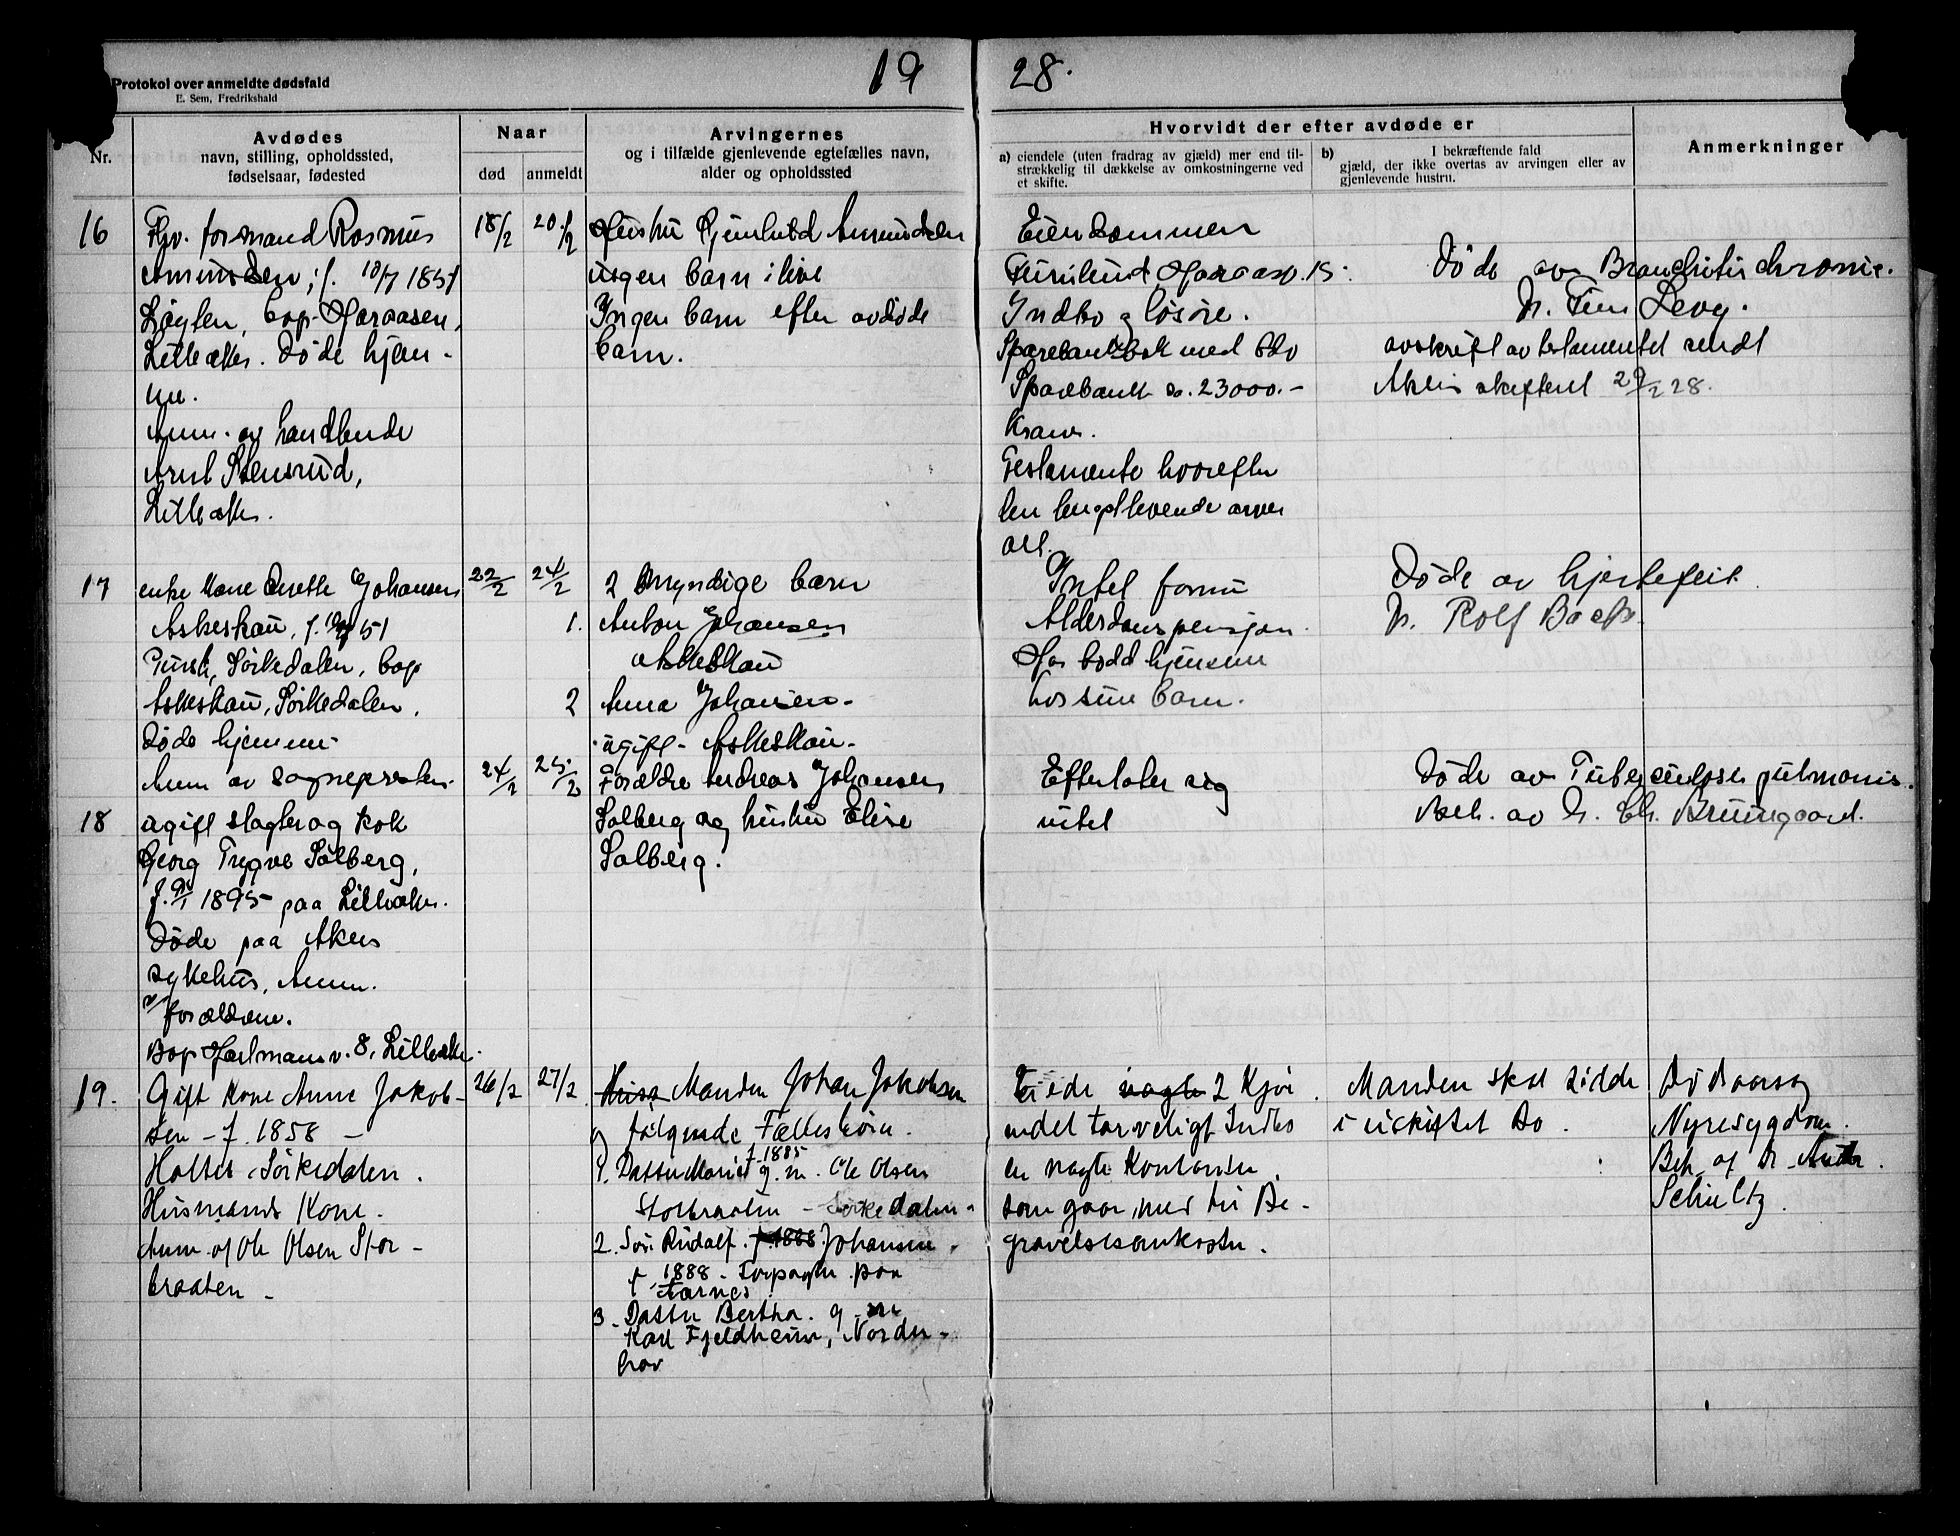 19 28.
Protokol over anmeldte dødsfald
E. Sem, Fredrikshald
Nr.
Avdødes
navn, stilling, opholdssted,
fødselsaar, fødested
Naar
død anmeldt
Arvingernes
og i tilfælde gjenlevende egtefælles navn,
alder og opholdssted
Hvorvidt der efter avdøde er
a) eiendele (uten fradrag av gjæld) mer end til-
strækkelig til dækkelse av omkostningerne ved
et skifte.
b) I bekræftende fald
gjæld, der ikke overtas av arvingen eller av
gjenlevende hustru.
Anmerkninger
16
Fhv. formand Rasmus
Amundsen, f. 10/7 1851
bop. Haraasen,
Lilleaker. Døde hjem-
me.
Anm. av landhandler
Stensrud,
Lilleaker.
18/2 20/2
Hustru Amundsen
ingen barn i live
Ingen barn efter avdøde
barn.
Eiendommen
15.
Indbo og løsøre.
Sparebankbok med
Sparebank ca. 23000.-
Kroner.
Testamente hvorefter
den lengstlevende arver
alt.
Døde av Bronchitis chronic.
Dr. Levy.
avskrift av testamentet sendt
Akers skifteret 29/2 28.
17
enke Johansen
Askeskau, f. 51
Sørkedalen, bop
Askeskau, Sørkedalen.
Døde hjemme
Anm av sognepresten.
22/2 24/2
2 myndige barn
1. Anton Johansen
Askeskau
2 Anna Johansen-
ugift - Askeskau.
Intet formue
Alderdomspensjon.
Har bodd hjemme
hos sine barn.
Døde av hjertefeil.
Dr. Rolf Bach.
18
ugift slagter og kok
Georg Trygve Solberg,
f. 9/1 1895 paa Lilleaker.
Døde paa Akers
sykehus, Anm.
av forældrene.
Bop Hartmansv. 8, Lilleaker.
24/2 25/2
Forældre Andreas Johansen
Solberg og hustru Elise
Solberg.
Efterlater sig
intet
Døde av Tuberculose pulmonis.
Beh. av Dr. Chr. Bruusgaard.
19.
Gift Kone Anne Jakob-
sen - f. 1858 -
Holtet i Sørkedalen.
Husmands Kone.
Anm. af Ole Olsen Stor-
braaten -
26/2 27/2
Manden Johan Jakobsen
og følgende Fællesbørn.
1. Datter Marie f. 1885 g. m. Ole Olsen
Storbraaten - Sørkedalen.
2. Søn Rudolf. f 1888 Johansen.
f. 1888 - paa
Aarnes.
3. Datter Bertha. g. m.
Karl Fjeldheim, Norder-
hov
Eiede nogle 2 Kjør
endel tarveligt Indbo
en nogle Kontanter
som gaar med til Be-
gravelsesomkostn.
Manden skal sidde
i uskiftet Bo.
Dødsaarsag
Nyresygdom.
Beh. af Dr.
Schultz.